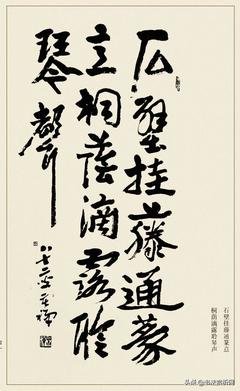 石壁挂藤通篆
意桐蔭滴露聆
琴聲
石壁挂藤通篆意
桐荫滴露聆琴声